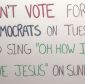 N'T VOTE FOR
MOCRATS ON TUES
D SING "OH HOW I
VE JESUS" ON SUN